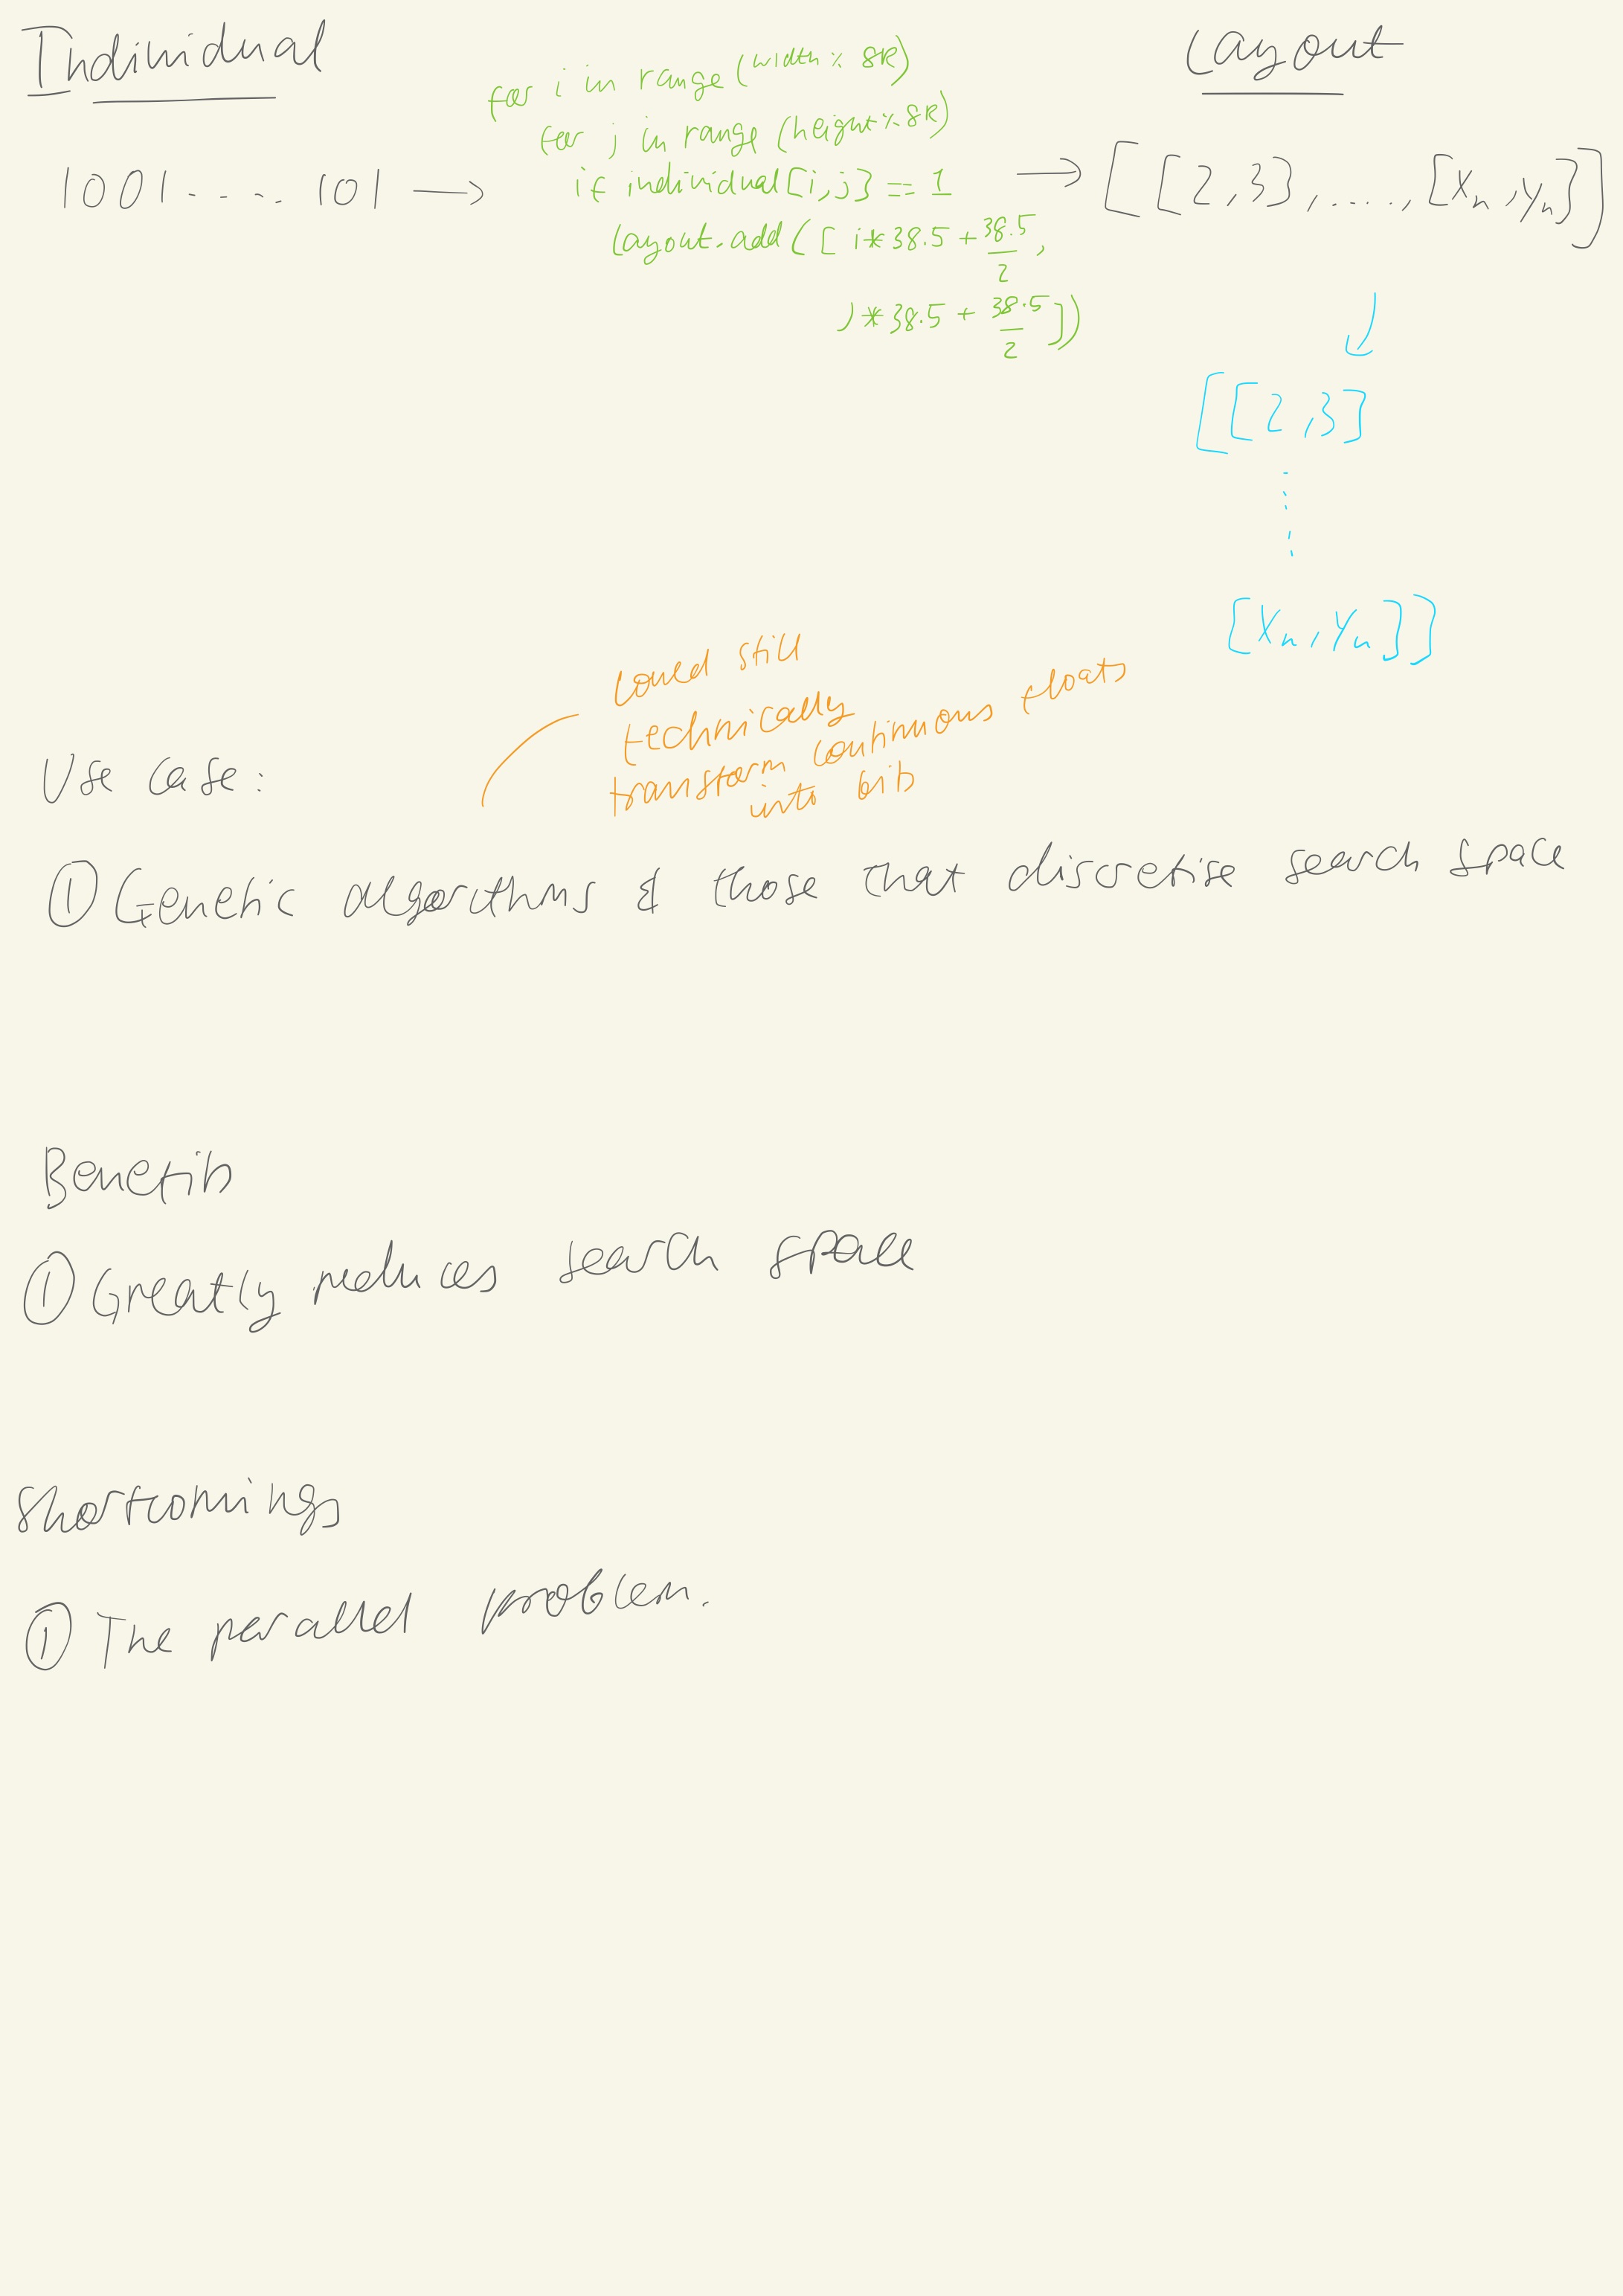 Individual
Layout
for i in range (width % 8R)
for j in range (height % 8R)
if individual[i,j] == 1
layout.add([i*38.5 + 38.5/2,
j*38.5 + 38.5/2])
1001.....101 →
→ [[2,3],....,[Xn,yn]]
[[2,3]
[Xn,yn]]
could still
technically
transform continuous floats
into bits
Use case:
① Genetic algorithms & those that discretise search space
Benefits
① Greatly reduces search space
Shortcomings
① The parallel problem.